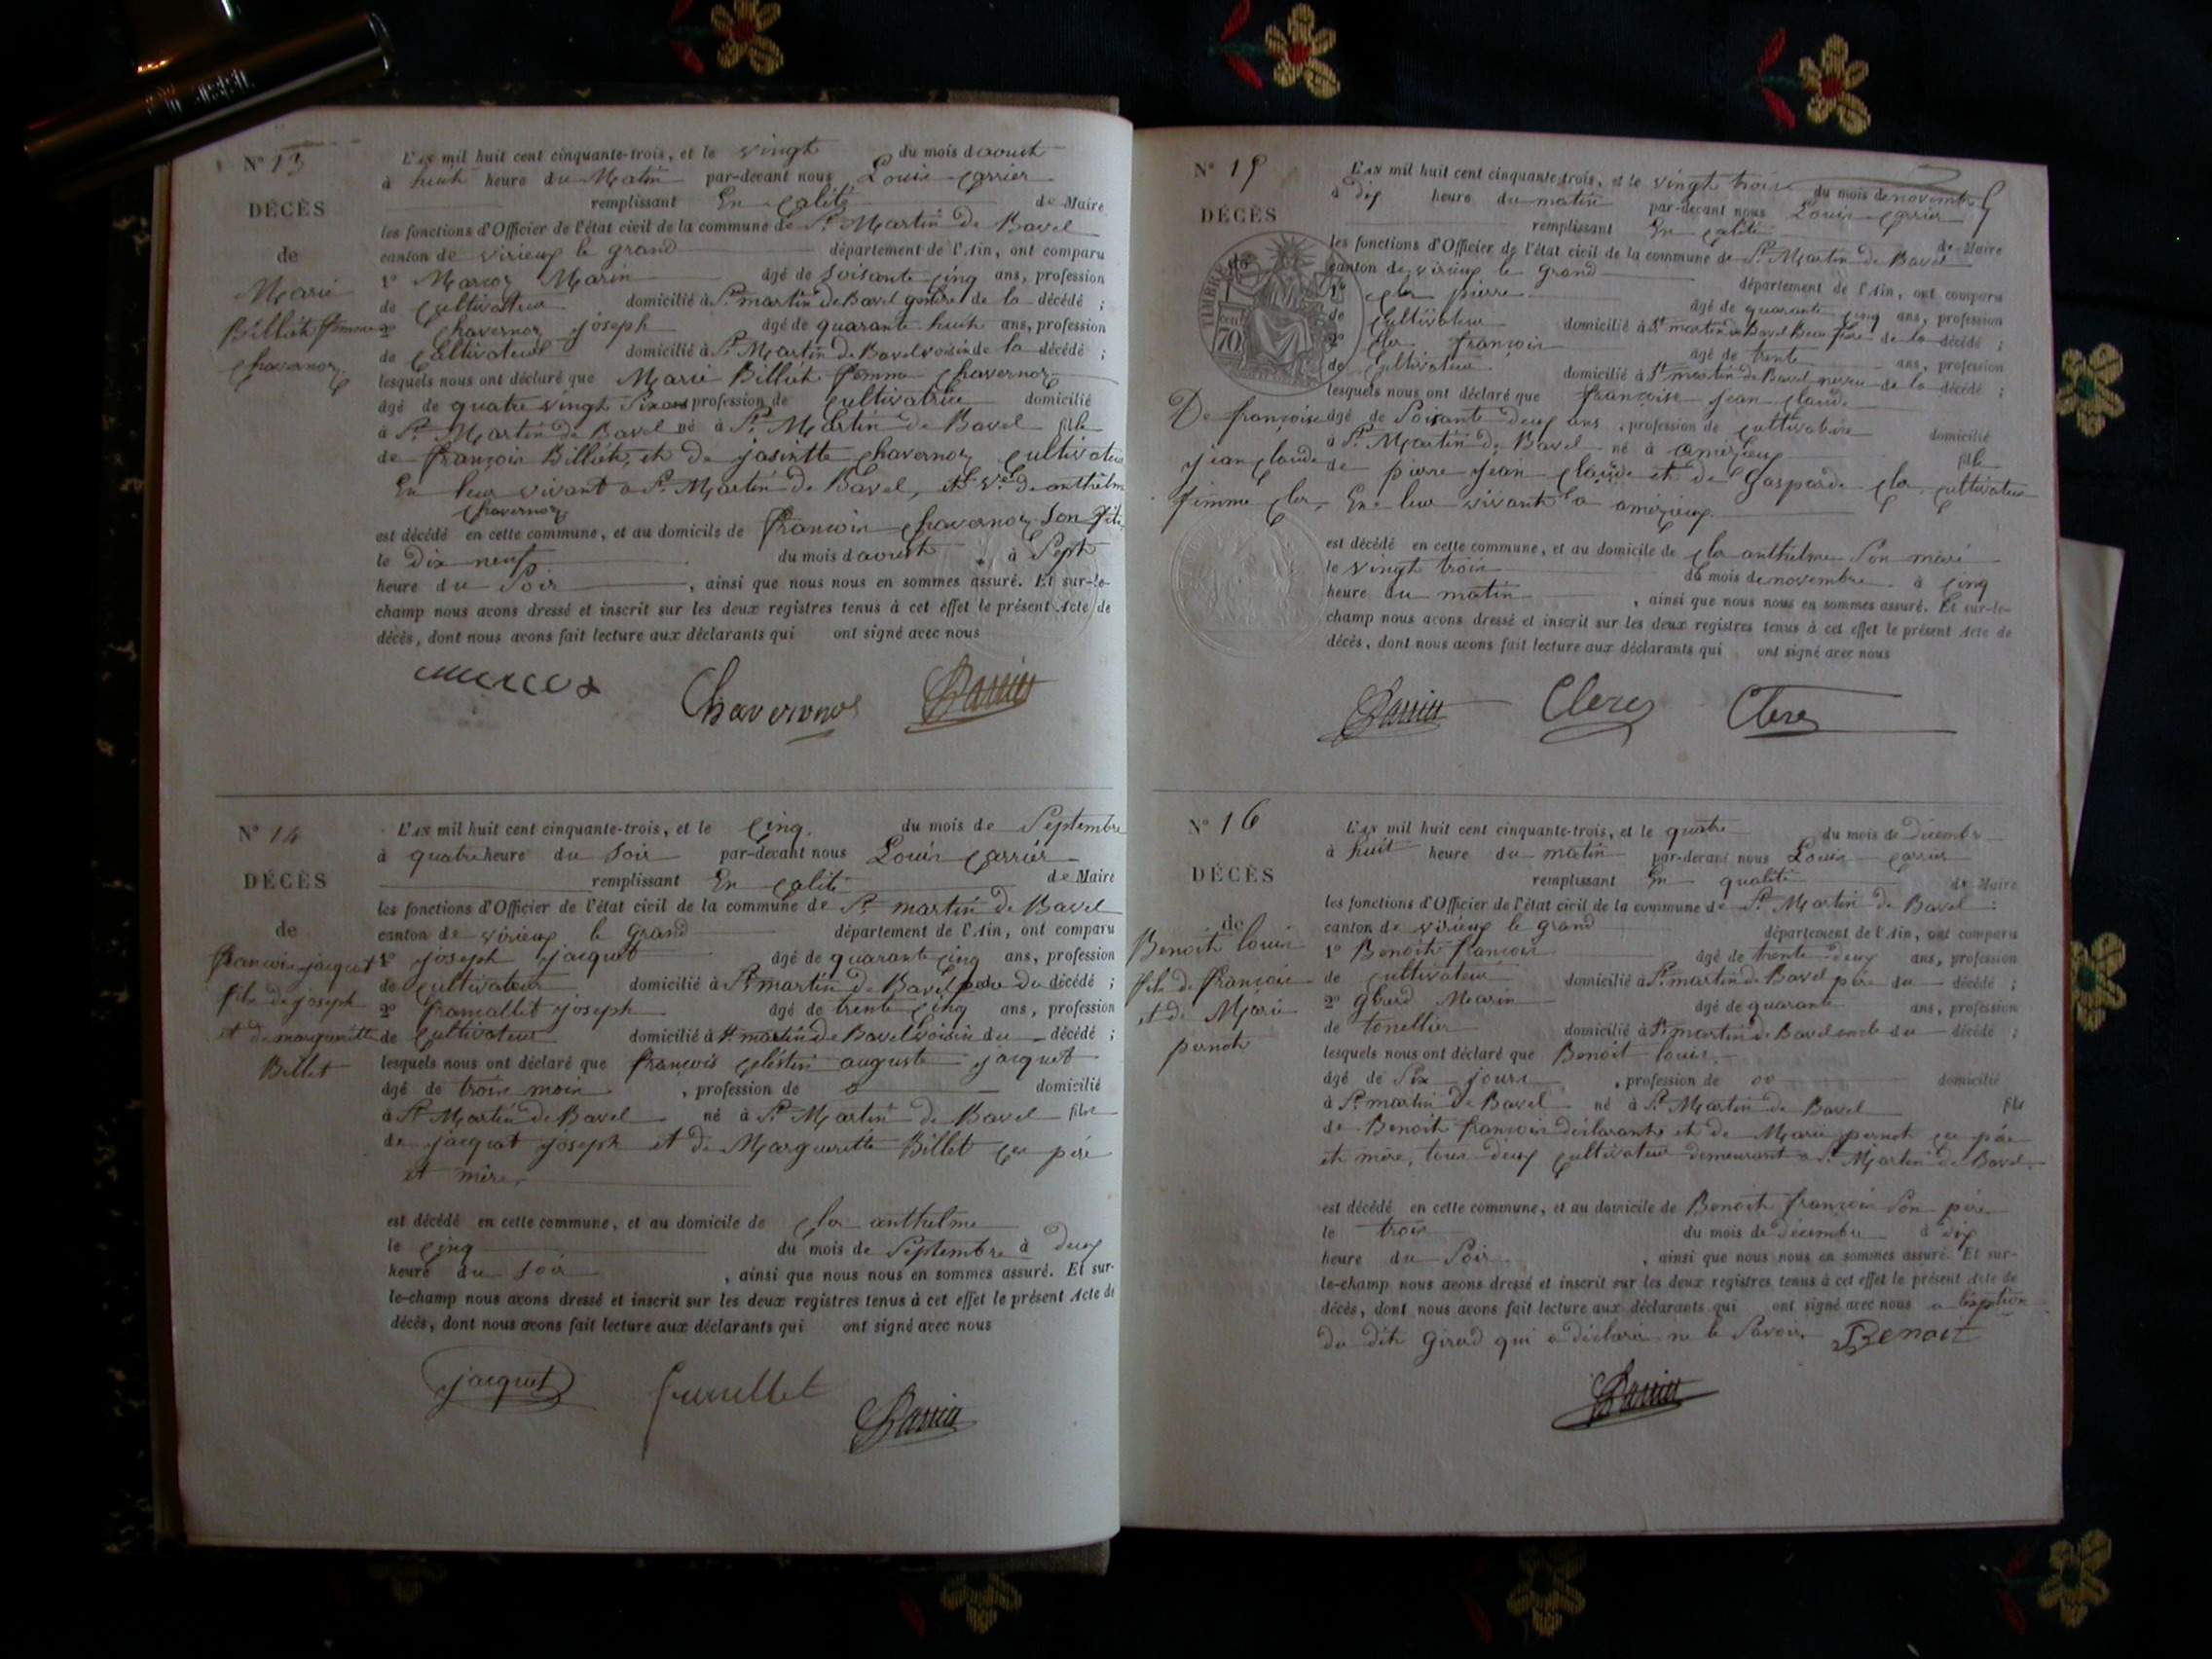 N° 13
DÉCÈS
de
Marie
Billiet femme
Chavernoz
L'an mil huit cent cinquante-trois, et le vingt du mois daoust
à huit heure du Matin par-devant nous Louis Carrier
remplissant En calité de Maire
les fonctions d'Officier de l'état civil de la commune de St Martin de Bavel
canton de virieux le grand département de l'Ain, ont comparu
1° Marcoz Marin âgé de soisante cinq ans, profession
de Cultivateur domicilié à St martin de Bavel gendre de la décédé ;
2° Chavernoz joseph âgé de quarante huit ans, profession
de Cultivateur domicilié à St Martin de Bavel voisin de la décédé ;
lesquels nous ont déclaré que Marie Billiet femme Chavernoz
âgé de quatre vingt Six ans profession de Cultivatrice domicilié
à St Martin de Bavel né à St Martin de Bavel fille
de françois Billiet, et de jasintte Chavernoz Cultivateur
En leur vivant a St Martin de Bavel, et Ve de anthelme
Chavernoz
est décédé en cette commune, et au domicile de francois Chavernoz Son fils
le Dix neuf du mois daoust à Sept
heure du Soir , ainsi que nous nous en sommes assuré. Et sur-le-
champ nous avons dressé et inscrit sur les deux registres tenus à cet effet le présent Acte de
décès, dont nous avons fait lecture aux déclarants qui ont signé avec nous
Chavernoz Carrier
N° 14
DÉCÈS
de
francois jacquet
fils de joseph
et de margueritte
Billet
L'an mil huit cent cinquante-trois, et le Cinq du mois de Septembre
à quatre heure du Soir par-devant nous Louis Carrier
remplissant En calité de Maire
les fonctions d'Officier de l'état civil de la commune de St martin de Bavel
canton de virieux le Grand département de l'Ain, ont comparu
1° joseph jacquet âgé de quarante cinq ans, profession
de Cultivateur domicilié à St martin de Bavel père du décédé ;
2° joseph âgé de trente cinq ans, profession
de Cultivateur domicilié à St martin de Bavel voisin du décédé ;
lesquels nous ont déclaré que françois célestin auguste jacquet
âgé de trois mois , profession de domicilié
à St Martin de Bavel né à St Martin de Bavel fils
de jacquet joseph et de Margueritte Billet ces père
et mère
est décédé en cette commune, et au domicile de Cler anthelme
le Cinq du mois de Septembre à Deux
heure du Soir , ainsi que nous nous en sommes assuré. Et sur-
le-champ nous avons dressé et inscrit sur les deux registres tenus à cet effet le présent Acte de
décès, dont nous avons fait lecture aux déclarants qui ont signé avec nous
jacquet Carrier
N° 15
DÉCÈS
de
TIMBRE
70
De françoise
jean claude
femme Cler
L'an mil huit cent cinquante-trois, et le vingt trois du mois de novembre
à dix heure du matin par-devant nous Louis Carrier
remplissant En calité de Maire
les fonctions d'Officier de l'état civil de la commune de St Martin de Bavel
canton de virieux le Grand département de l'Ain, ont comparu
1° Cler pierre âgé de quarante cinq ans, profession
de Cultivateur domicilié à St martin de Bavel Beau frère de la décédé ;
2° Cler françois âgé de trente ans, profession
de Cultivateur domicilié à St martin de Bavel neveu de la décédé ;
lesquels nous ont déclaré que françoise jean claude
âgé de Soixante deux ans , profession de cultivatrice domicilié
à St Martin de Bavel né à amézieux fille
de pierre jean claude et de Gasparde Cler cultivateur
En leur vivant a amézieux
est décédé en cette commune, et au domicile de Cler anthelme Son mari
le vingt trois du mois de novembre à cinq
heure du matin , ainsi que nous nous en sommes assuré. Et sur-le-
champ nous avons dressé et inscrit sur les deux registres tenus à cet effet le présent Acte de
décès, dont nous avons fait lecture aux déclarants qui ont signé avec nous
Carrier Clerc Clerc
N° 16
DÉCÈS
de
Benoit louis
fils de françois
et de Marie
pernot
L'an mil huit cent cinquante-trois, et le quatre du mois de decembre
à huit heure du matin par-devant nous Louis Carrier
remplissant En qualité de Maire
les fonctions d'Officier de l'état civil de la commune de St Martin de Bavel
canton de virieux le grand département de l'Ain, ont comparu
1° Benoit françois âgé de trente deux ans, profession
de cultivateur domicilié à St martin de Bavel père du décédé ;
2° Marin âgé de quarante ans, profession
de tonellier domicilié à St martin de Bavel oncle du décédé ;
lesquels nous ont déclaré que Benoit louis
âgé de Six jours , profession de 00 domicilié
à St martin de Bavel né à St Martin de Bavel fils
de Benoit françois déclarant et de Marie pernot ces père
et mère, tous deux cultivateur demeurant a St Martin de Bavel
est décédé en cette commune, et au domicile de Benoit françois Son père
le trois du mois de décembre à dix
heure du Soir , ainsi que nous nous en sommes assuré. Et sur-
le-champ nous avons dressé et inscrit sur les deux registres tenus à cet effet le présent Acte de
décès, dont nous avons fait lecture aux déclarants qui ont signé avec nous a
du dit Girod qui a déclaré ne le Savoir Benoit
Carrier